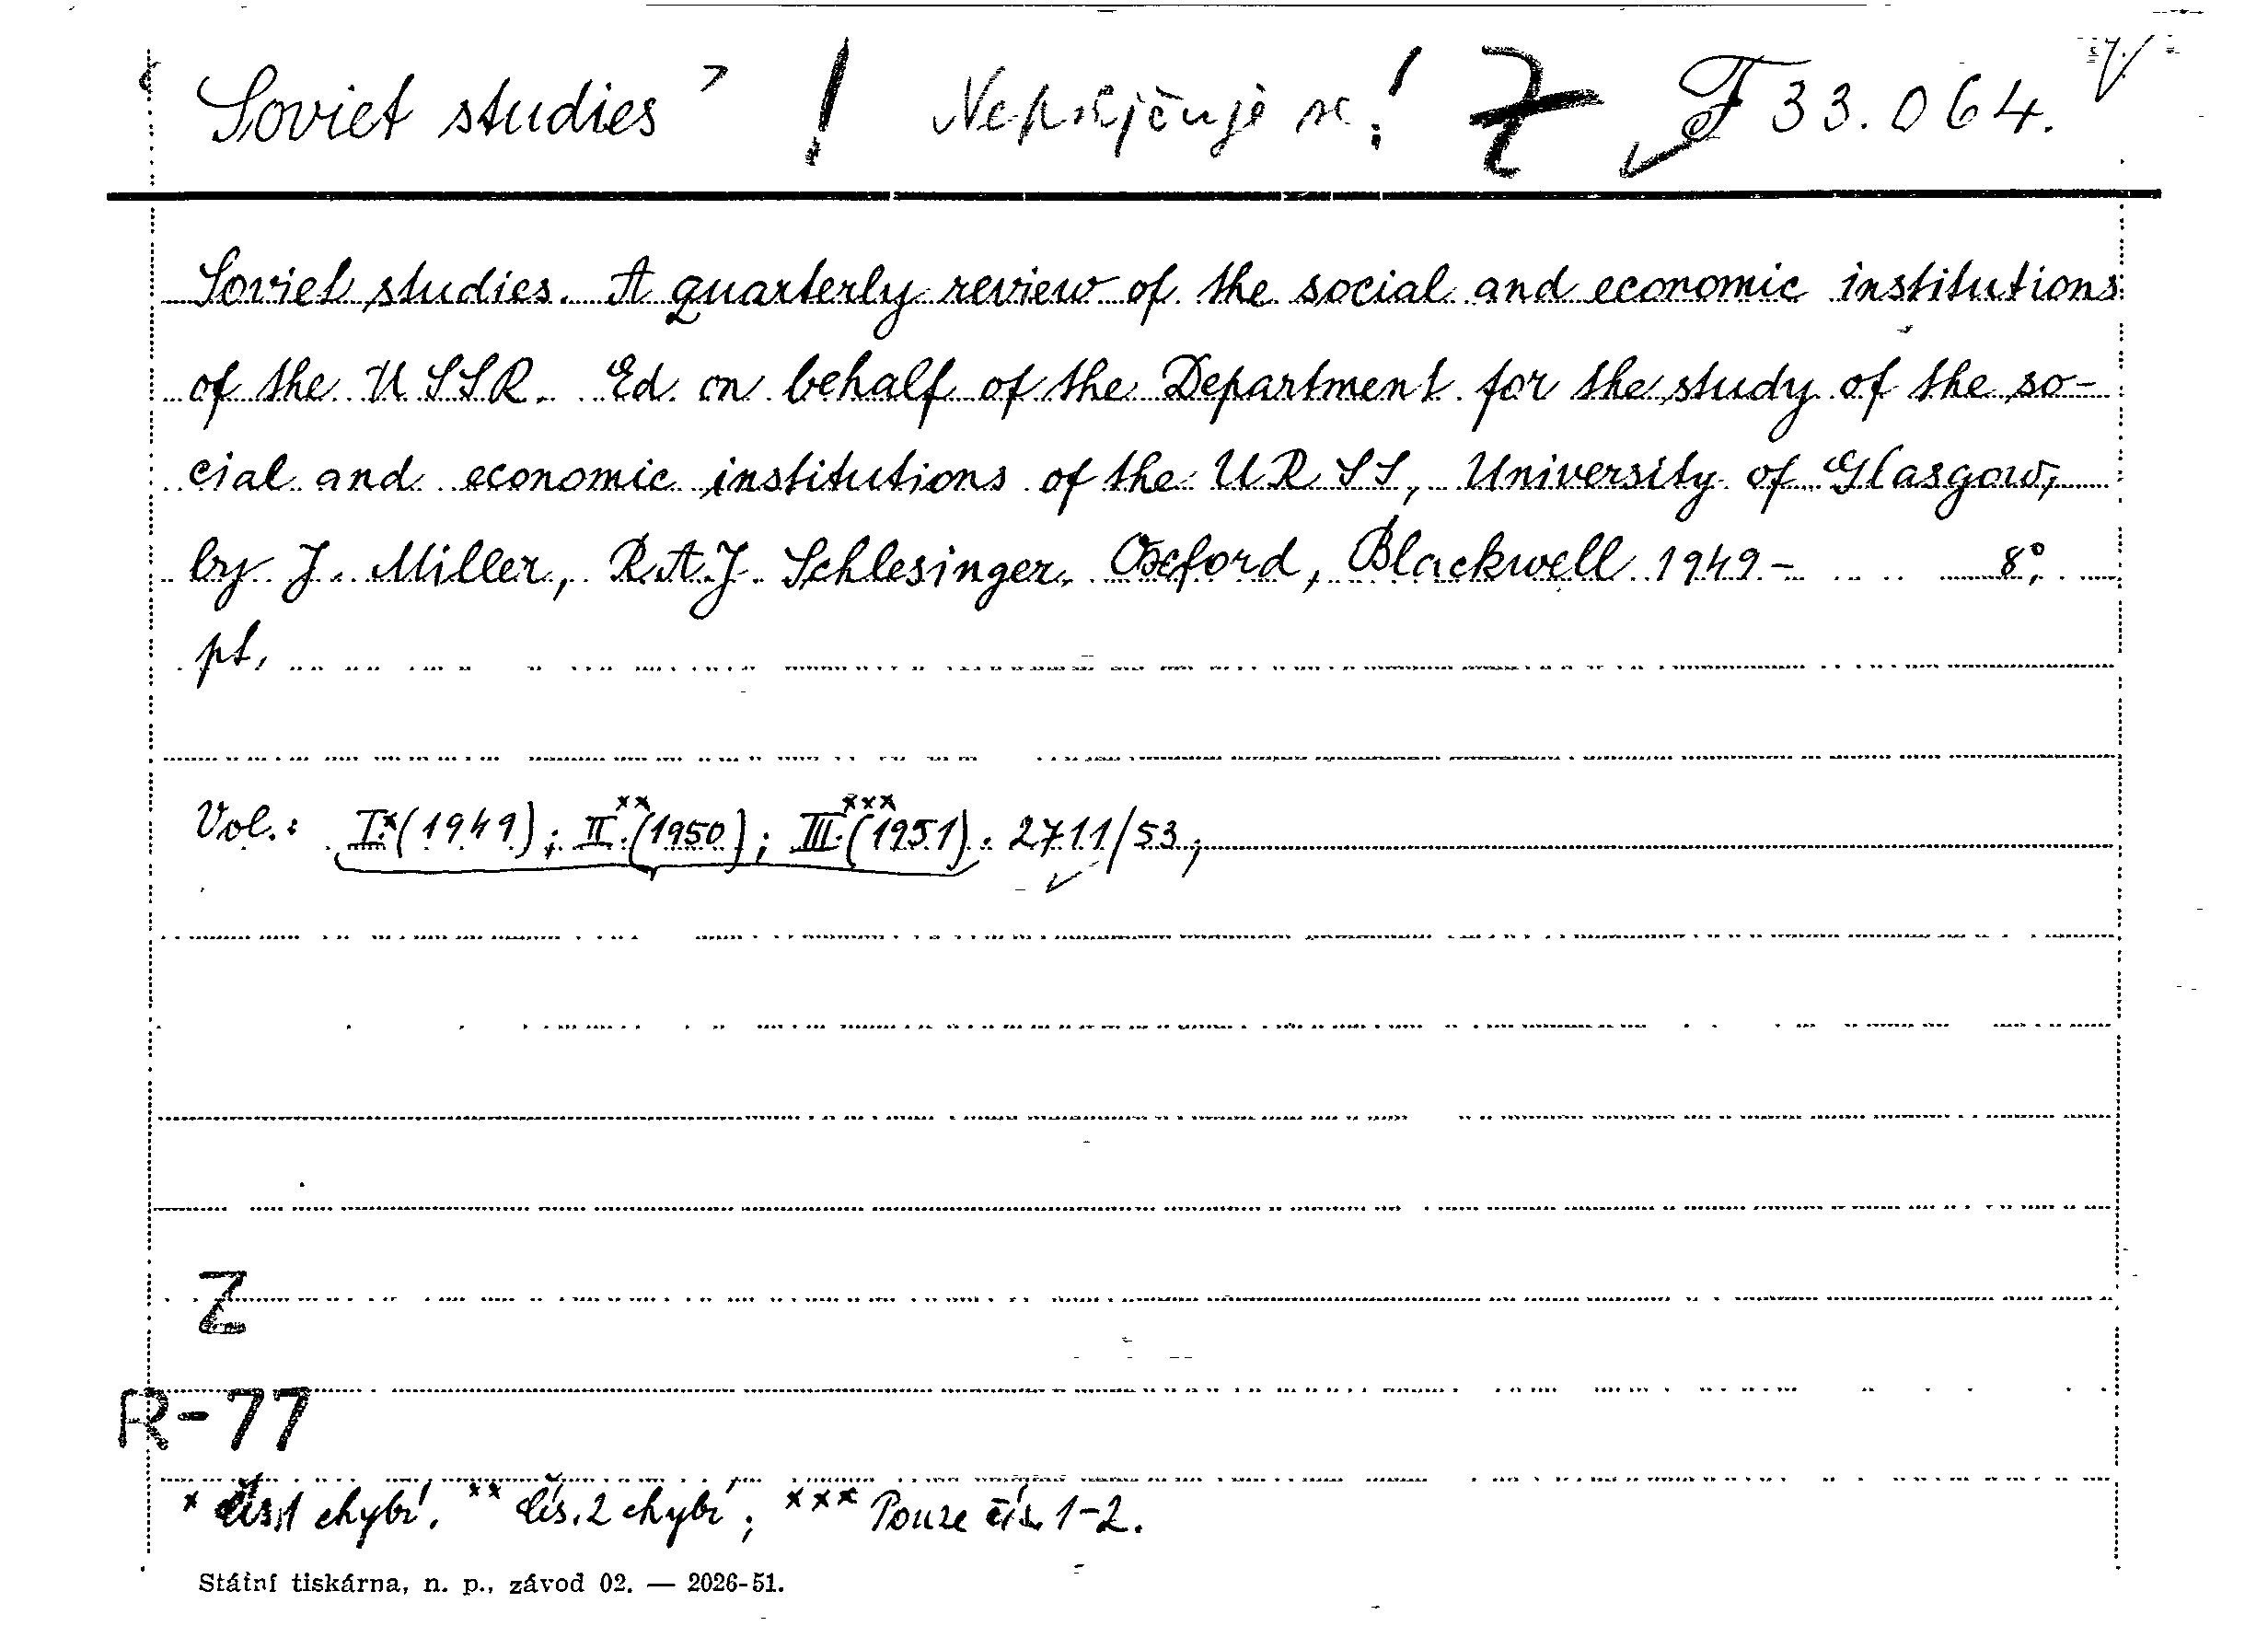 Soviet studies ! Nepůjčuje se! Z F 33.064.
Soviet studies. A quarterly review of the social and economic institutions
of the USSR. Ed. on behalf of the Department for the study of the so-
cial and economic institutions of the URSS, University of Glasgow,
by J. Miller, R.A.J. Schlesinger. Oxford, Blackwell 1949- 8°.
pt.
Vol.: I.*(1949); II.**(1950); III.***(1951). 2711/53,
Z
R-77
* čís. 1 chybí. ** čís. 2 chybí; *** Pouze čís. 1-2.
Státní tiskárna, n. p., závod 02. — 2026-51.